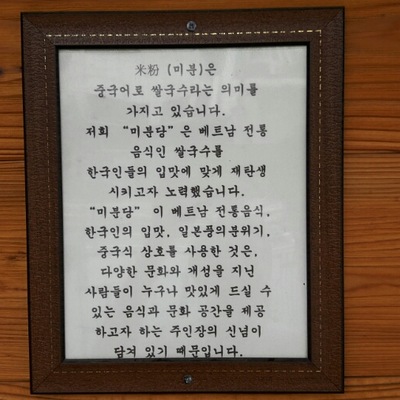 米粉 (미분)은
중국어로 쌀국수라는 의미를
가지고 있습니다.
저희 “미분당”은 베트남 전통
음식인 쌀국수를
한국인들의 입맛에 맞게 재탄생
시키고자 노력했습니다.
“미분당” 이 베트남 전통음식,
한국인의 입맛, 일본풍의분위기,
중국식 상호를 사용한 것은,
다양한 문화와 개성을 지닌
사람들이 누구나 맛있게 드실 수
있는 음식과 문화 공간을 제공
하고자 하는 주인장의 신념이
담겨 있기 때문입니다.